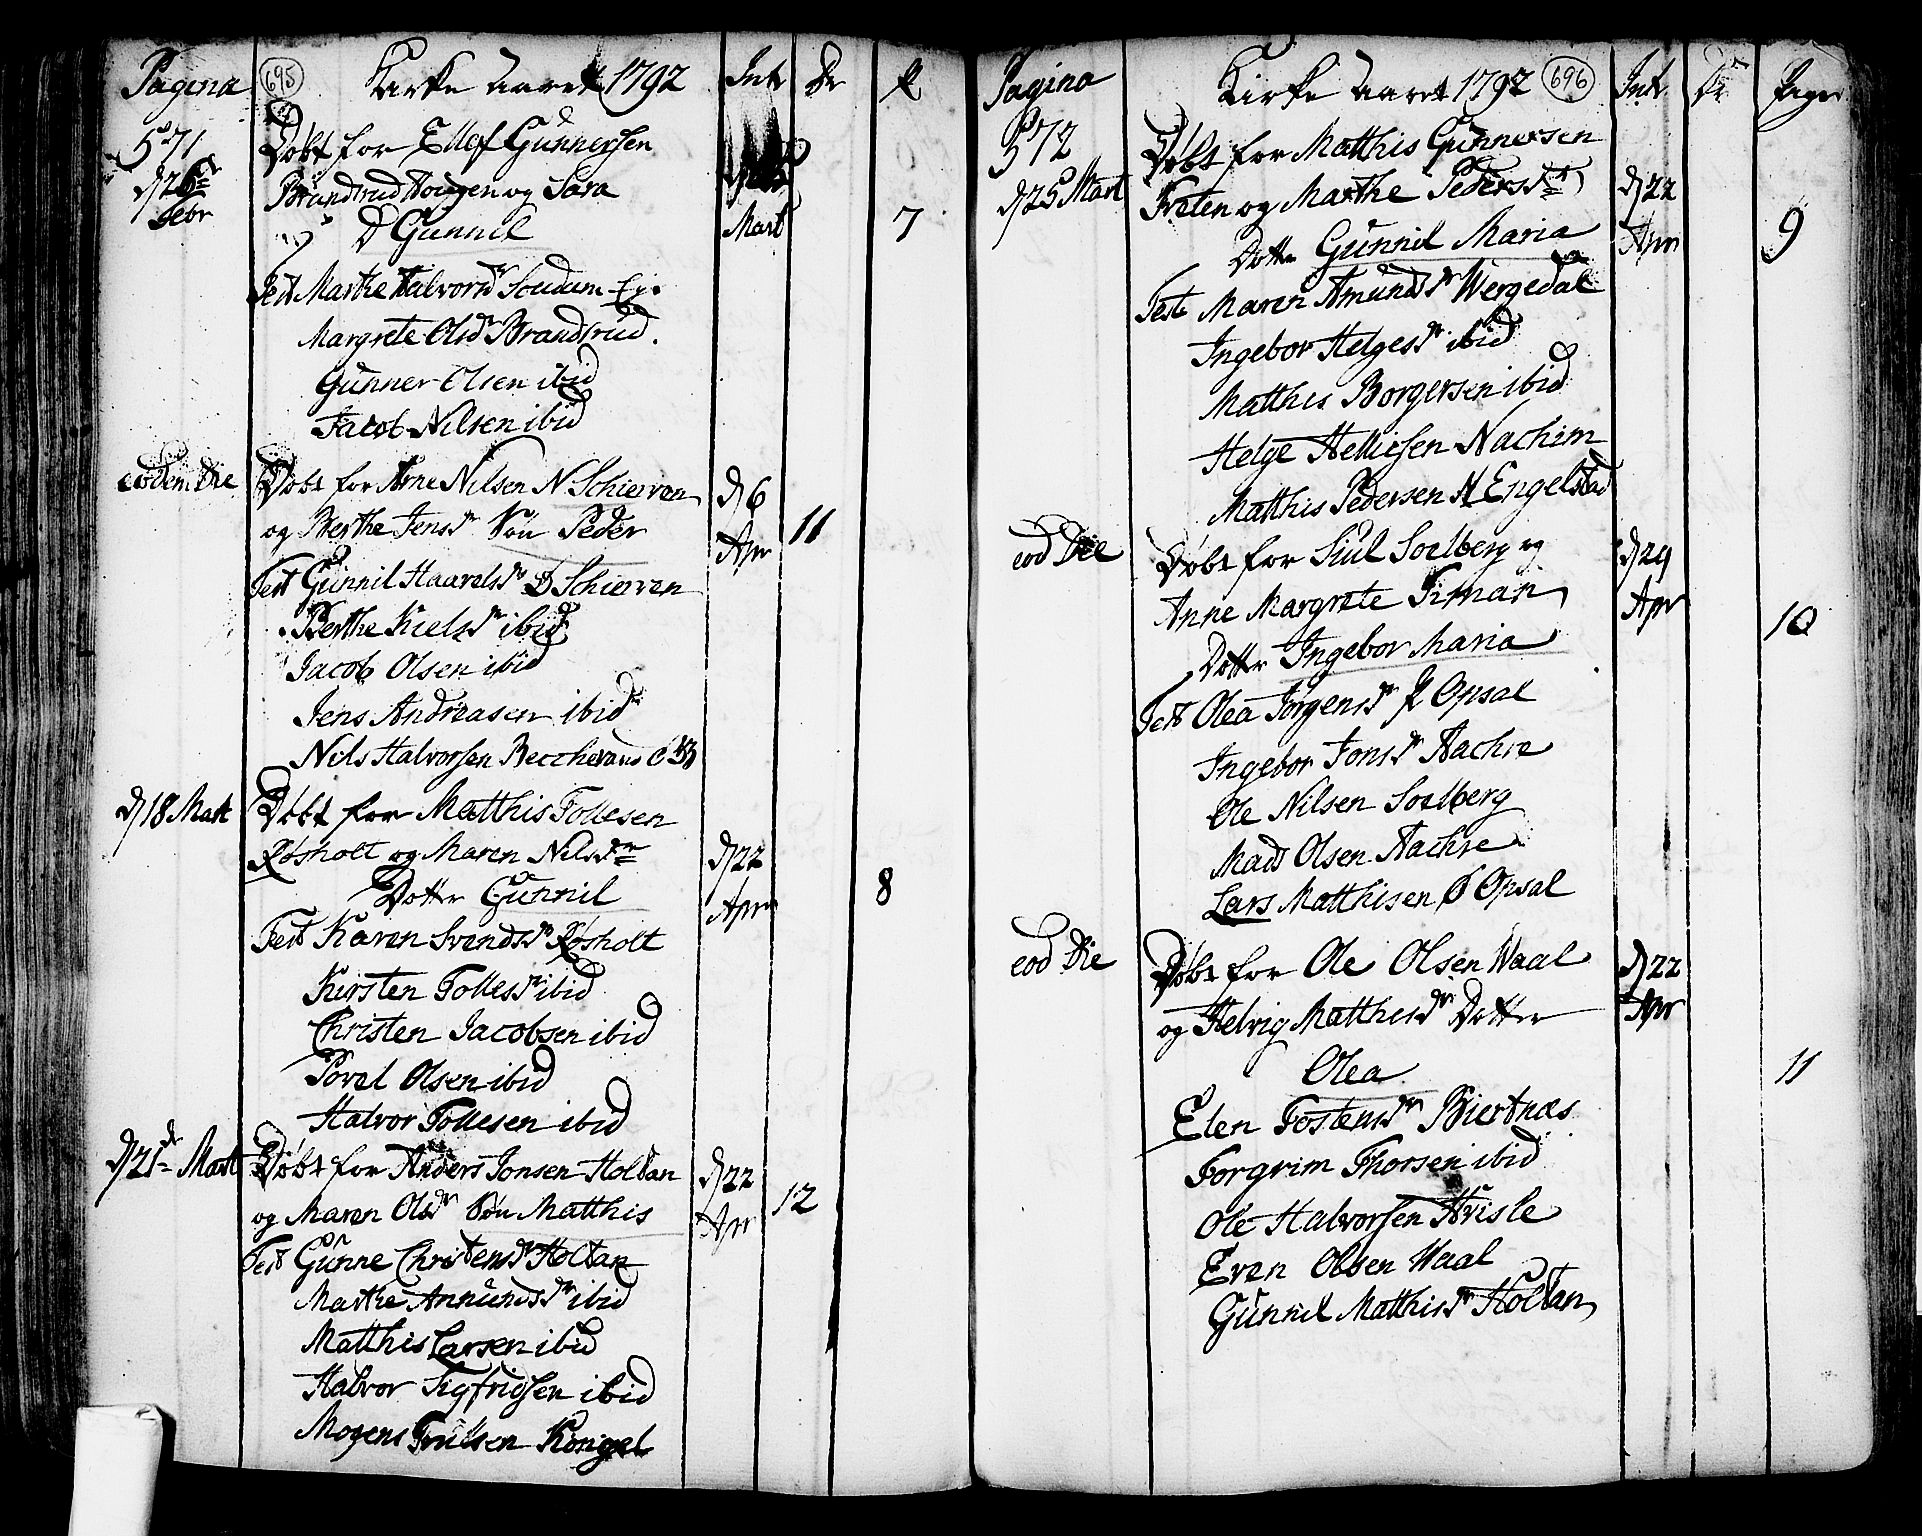 Pagina 695 Kirke Aaret 1792 Int Dr P
571
d 26de Febr
Døbt for Ellef Gunnersen
Brandrud Hougen og Sara
D Gunnil
Mart
7
Test Marthe Halvorsdr Soudum Eje
Margrete Olsdr Brandsrud.
Gunner Olsen ibid
Jacob Nilsen ibid
eodem Die Døbt for Arne Nilsen N. Schierven
og Berthe Jensdr Søn Peder
d 6 Apr
11
Test Gunnil Haavelsdr Ø Schierven
Berthe Nielsdr ibid
Jacob Olsen ibid
Jens Andreasen ibid
Nils Halvorsen Becchevand
d 18 Mart Døbt for Matthis Tollesen
Røsholt og Maren Nilsdr
Dotter Gunnil
d 22 Apr
8
Test Karen Svendsdr Røsholt
Kirsten Tollesdr ibid
Christen Jacobsen ibid
Povel Olsen ibid
Halvor Tollesen ibid
d 21de Mart Døbt for Anders Jonsen Holtan
og Maren Olsdr Søn Matthis
d 22 Apr
12
Test Gunne Christensdr Holtan
Marthe Annundsdr ibid
Matthis Larsen ibid
Halvor Sigfridsen ibid
Mogens Trulsen Kongel
Pagina Kirke Aaret 1792 696 Int Dr Piger
572
d 25 Mart
Døbt for Matthis Gunnersen
Freten og Marthe Pedersdr
Dotter Gunnil Maria
d 22 Apr
9
Test Maren Amundsdr Wergedal
Ingebor Helgesdr ibid
Matthis Borgersen ibid
Helge Hellicsen Nachim
Matthis Pedersen N Engelstad
eod Die Døbt for Siul Soelberg og
Anne Margrete Timan
Dotter Ingebor Maria
d 29 Apr
10
Test Olea Jørgensdr Ø Opsal
Ingebor Jonsdr Aachre
Ole Nilsen Soelberg
Mads Olsen Aachre
Lars Matthisen Ø Opsal
eod Die Døbt for Ole Olsen Waal
og Helvig Matthisdr Dotter
Olea
d 22 Apr
11
Elen Tostensdr Biertnæs
Torgrim Thorsen ibid
Ole Halvorsen Hvisle
Even Olsen Waal
Gunnil Matthisdr Holtan